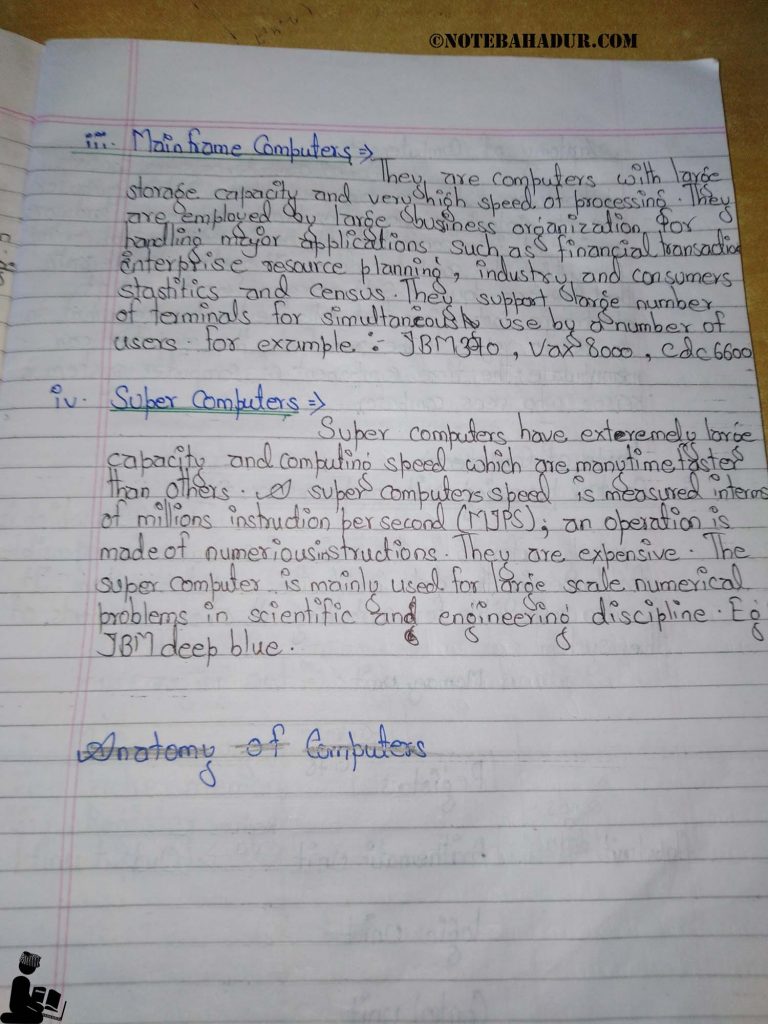 ©NOTEBAHADUR.COM
iii. Mainframe Computers ⇒
They are computers with large
storage capacity and very high speed of processing. They
are employed by large business organization for
handling major applications such as financial transaction
enterprise resource planning, industry and consumers
stastitics and census. They support large number
of terminals for simultaneously use by a number of
users. for example :- IBM 390, Vax 8000, cdc 6600
iv. Super Computers ⇒
Super computers have exteremely large
capacity and computing speed which are many time faster
than others. super computers speed is measured interms
of millions instruction per second (MIPS); an operation is
made of numerious instructions. They are expensive. The
super computer is mainly used for large scale numerical
problems in scientific and engineering discipline. Eg
IBM deep blue.
Anatomy of Computers